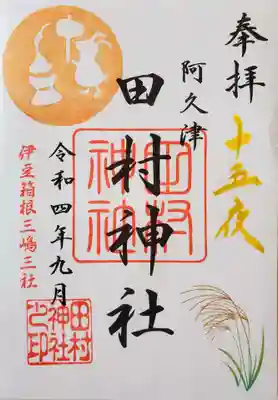 奉拝
十五夜
阿久津
田村神社
田村神社
令和四年九月
伊豆箱根三嶋三社
田村
神社
之印